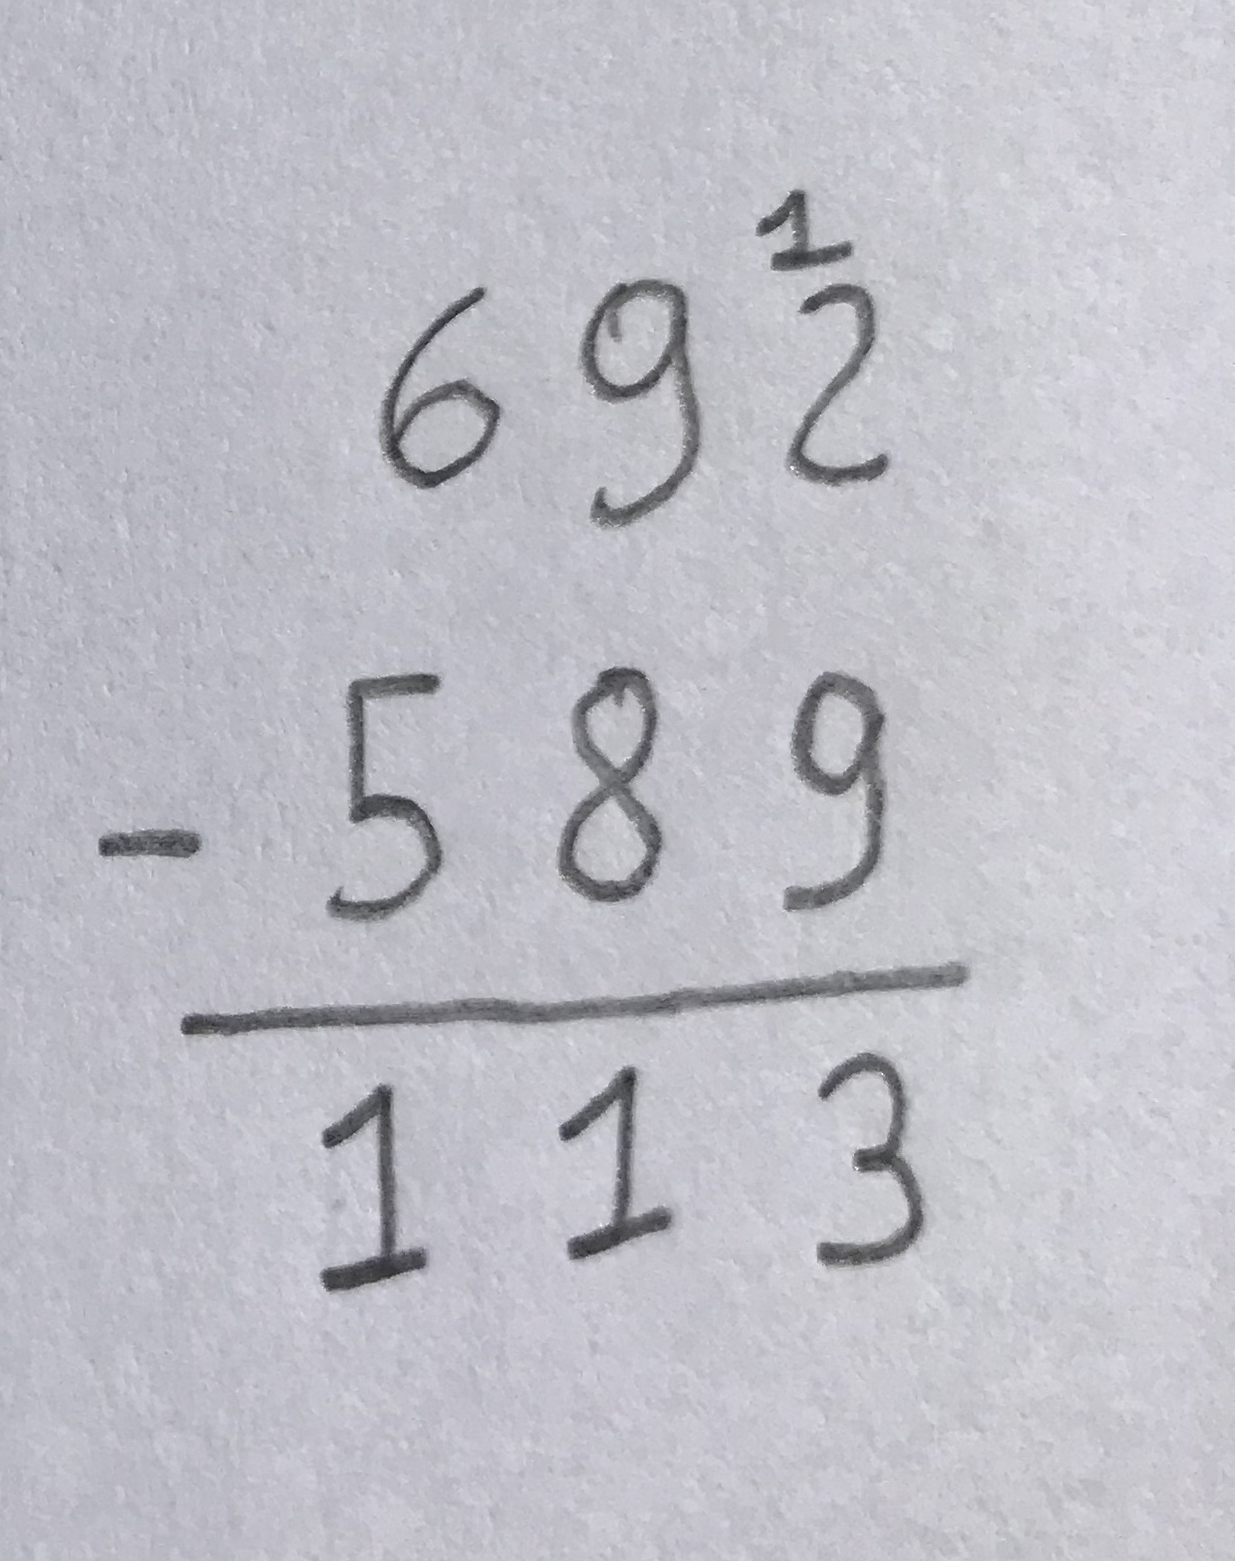 1
692
- 589
113